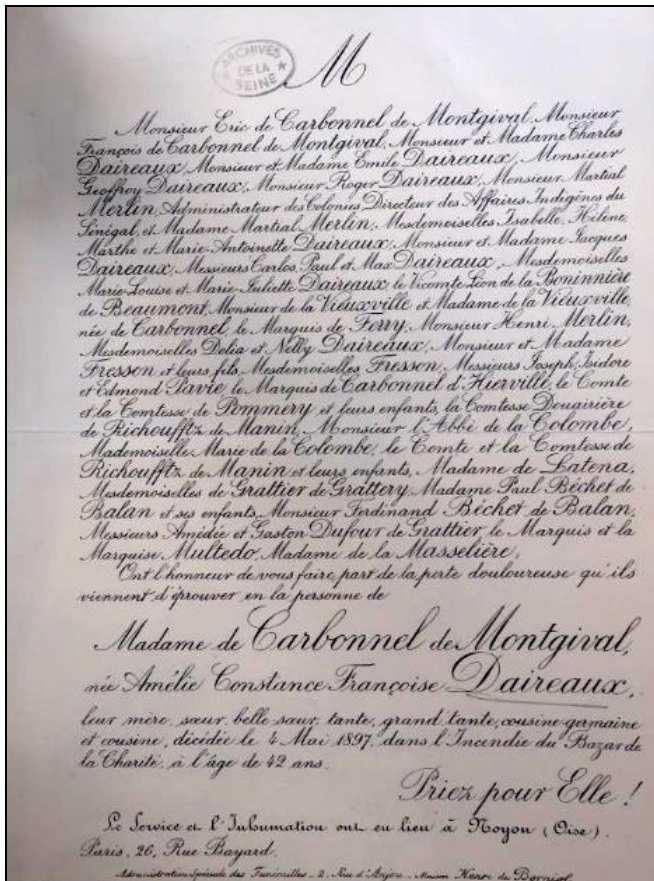 ARCHIVES
DE LA
SEINE
M
Monsieur Eric de Carbonnel de Montgival, Monsieur
François de Carbonnel de Montgival, Monsieur et Madame Charles
Daireaux, Monsieur et Madame Emile Daireaux, Monsieur
Geoffroy Daireaux, Monsieur Roger Daireaux, Monsieur Martial
Merlin, Administrateur des Colonies, Directeur des Affaires Indigènes du
Sénégal et Madame Martial Merlin, Mesdemoiselles Isabelle, Hélène,
Marthe et Marie-Antoinette Daireaux, Monsieur et Madame Jacques
Daireaux, Messieurs Carlos, Paul et Max Daireaux, Mesdemoiselles
Marie-Louise et Marie-Juliette Daireaux, le Vicomte Léon de la Boninnière
de Beaumont, Monsieur de la Vieuxville et Madame de la Vieuxville,
née de Carbonnel, le Marquis de Ferry, Monsieur Henri Merlin,
Mesdemoiselles Delia et Nelly Daireaux, Monsieur et Madame
Fresson et leurs fils, Mesdemoiselles Fresson, Messieurs Joseph, Isidore
et Edmond Pavie, le Marquis de Carbonnel d'Hierville, le Comte
et la Comtesse de Pommery et leurs enfants, la Comtesse Douairière
de Richoufftz de Manin, Monsieur l'Abbé de la Colombe,
Mademoiselle Marie de la Colombe, le Comte et la Comtesse de
Richoufftz de Manin et leurs enfants, Madame de Latena,
Mesdemoiselles de Grattier de Grattery, Madame Paul Béchet de
Balan et ses enfants, Monsieur Ferdinand Béchet de Balan,
Messieurs Amédée et Gaston Dufour de Grattier, le Marquis et la
Marquise Multedo, Madame de la Masselière,
Ont l'honneur de vous faire part de la perte douloureuse qu'ils
viennent d'éprouver en la personne de
Madame de Carbonnel de Montgival,
née Amélie Constance Françoise Daireaux,
leur mère, sœur, belle sœur, tante, grand'tante, cousine germaine
et cousine, décédée le 4 Mai 1897, dans l'Incendie du Bazar de
la Charité, à l'âge de 42 ans.
Priez pour Elle !
Le Service et l'Inhumation ont eu lieu à Noyon (Oise).
Paris, 26, Rue Bayard.
Administration Spéciale des Funérailles - 2, Rue d'Anjou - Maison Henri de Borniol